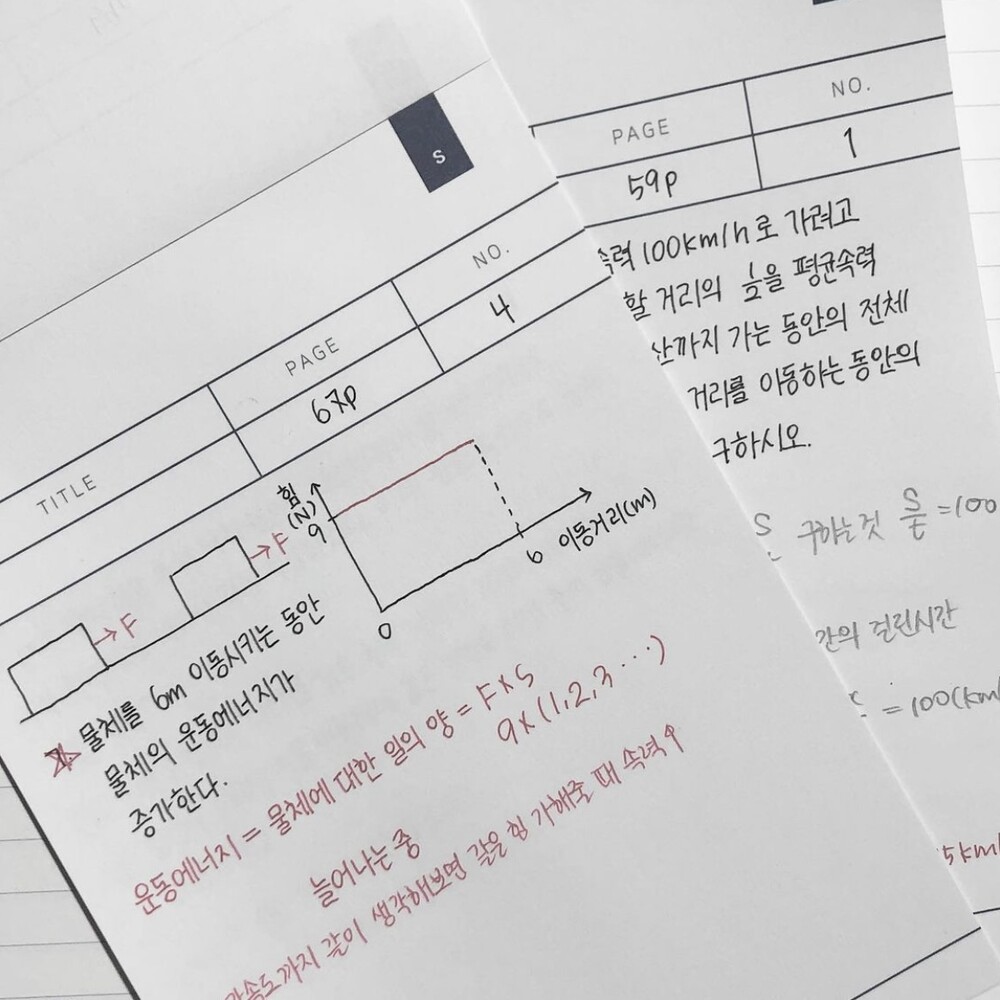 S
TITLE
PAGE
NO.
67p
4
힘
(N)
9
0
6
이동거리(m)
→F
→F
물체를 6m 이동시키는 동안
물체의 운동에너지가
증가한다.
운동에너지 = 물체에 대한 일의 양 = F×S
9×(1,2,3···)
늘어나는 중
같이 생각해보면 같은 힘 가해줄 때 속력↑
PAGE
NO.
59p
1
100km/h로 가려고
할 거리의 1/2을 평균속력
까지 가는 동안의 전체
거리를 이동하는 동안의
구하시오.
구하는것 S/t =100
걸린시간
= 100(km
5km/